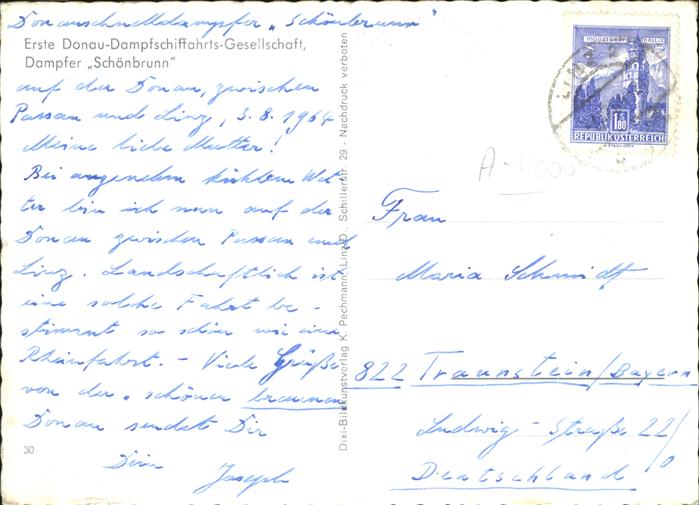 Donauschnelldampfer „Schönbrunn"
Erste Donau-Dampfschiffahrts-Gesellschaft,
Dampfer „Schönbrunn"
auf der Donau, zwischen
Passau und Linz, 3.8.1964
Meine liebe Mutter!
Bei angenehm kühlem Wet-
ter bin ich nun auf der
Donau zwischen Passau und
Linz. Landschaftlich ist
eine solche Fahrt be-
stimmt so schön wie eine
Rheinfahrt. – Viele Grüße
von der „schönen braunen
Donau sendet Dir
Dein Joseph
30
Dixi-Bildkunstverlag K. Pechmann, Linz/D., Schillerstr. 29 - Nachdruck verboten
1.80
REPUBLIK ÖSTERREICH
A-4000
Frau
Maria Schmidt
822 Traunstein/Bayern
Ludwig-Straße 22/
0
Deutschland